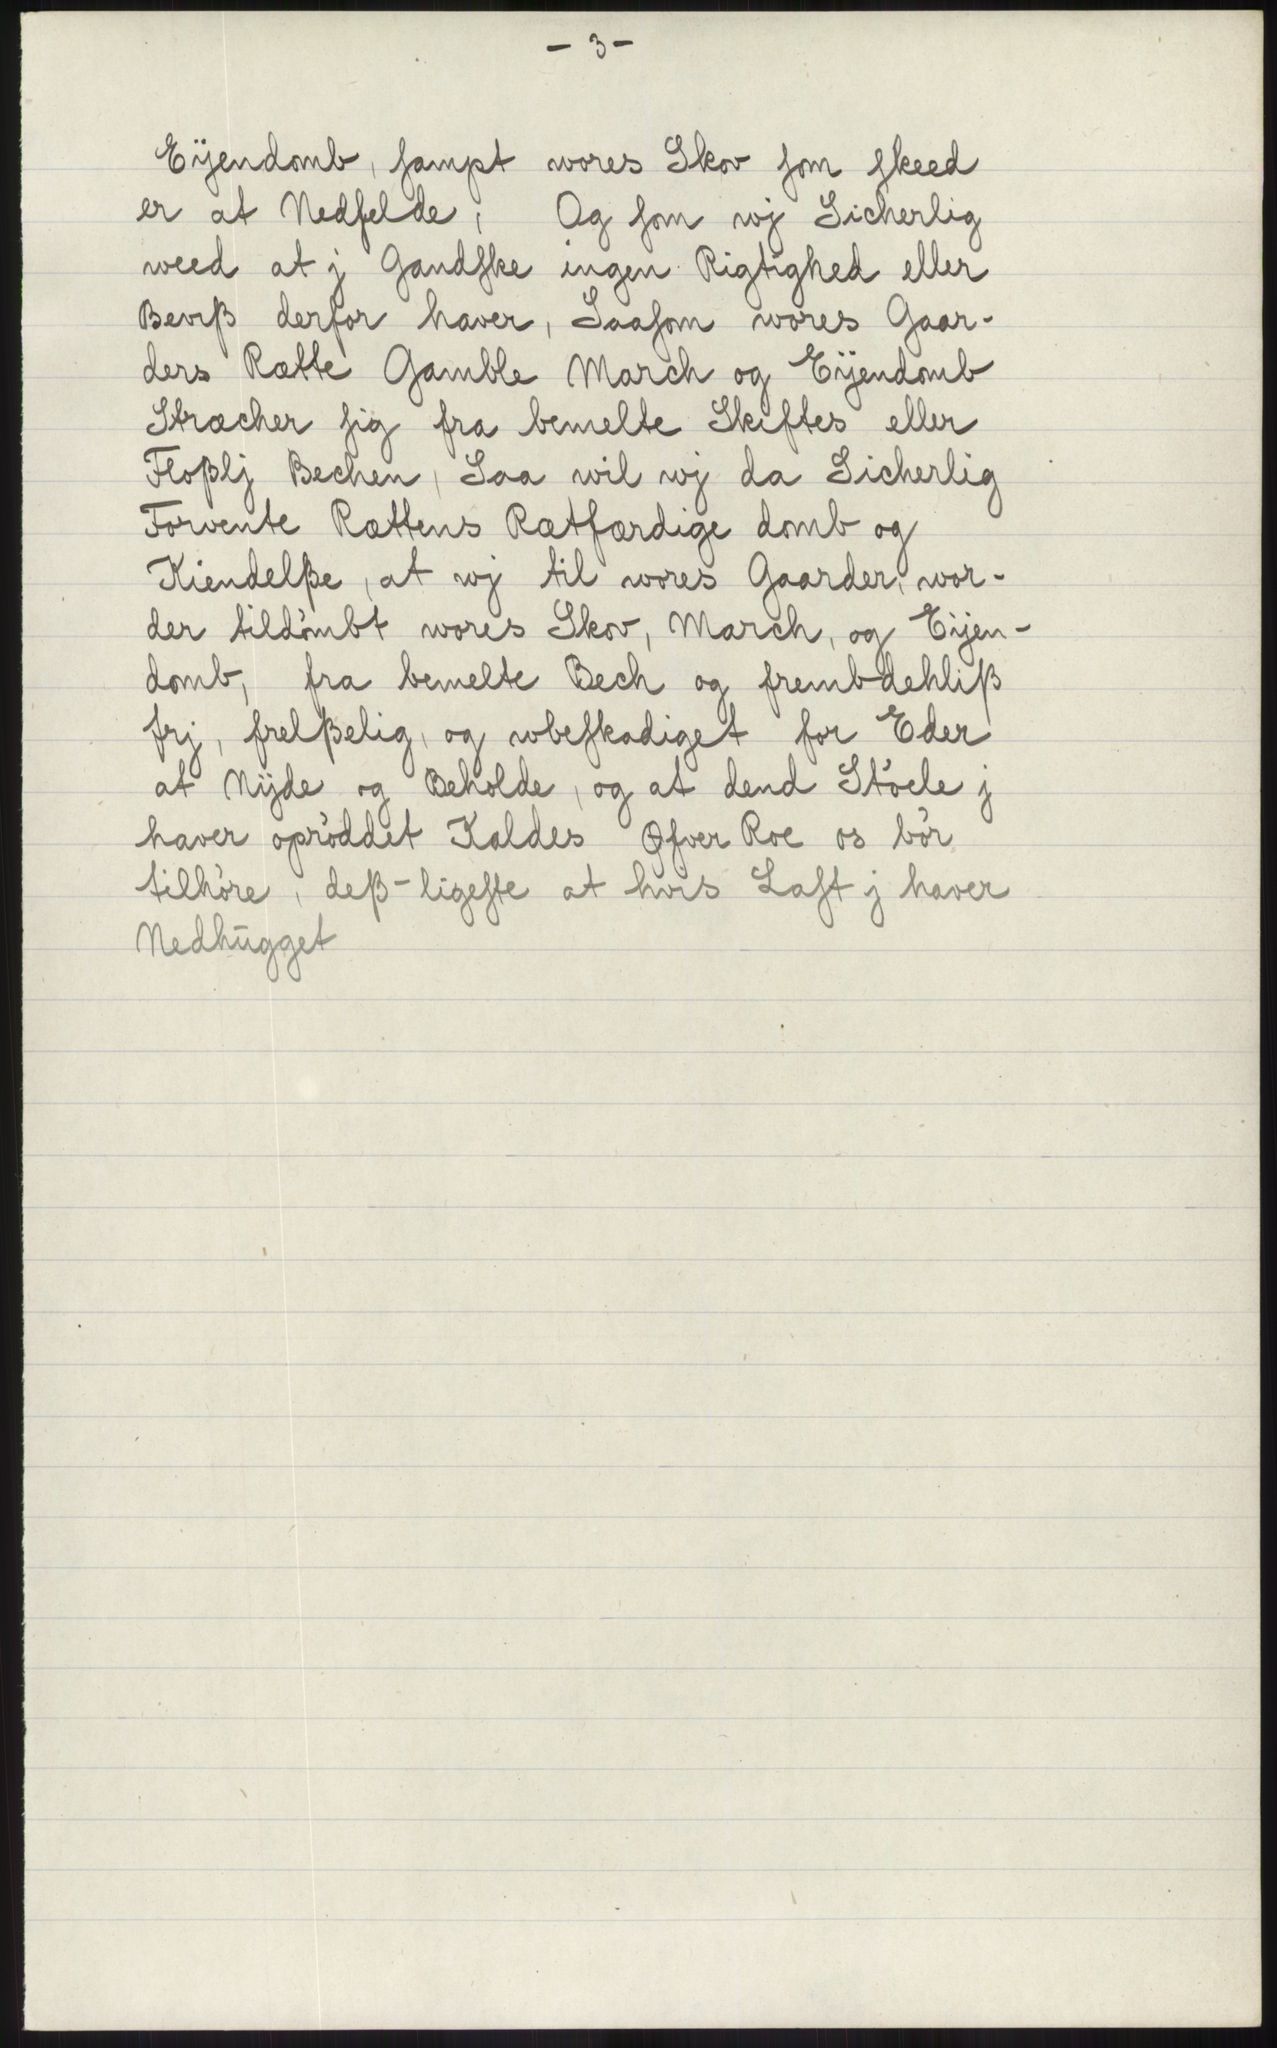 - 3 -
Eÿendomb, sampt wores Skov som skeed
er at Nedfelde, Og som wj Sicherlig
weed at j Gandske ingen Rigtighed eller
Beviß derfor haver, Saasom wores Gaar-
ders Rætte Gamble March og Eÿendomb
Stræcher sig fra bemelte Skiftes eller
Floßlj Bechen, Saa wil wj da Sicherlig
Forvente Rættens Rætfærdige domb og
Kiendelße, at wj til wores Gaarder, wor-
der tildömbt wores Skov, March, og Eÿen-
domb, fra bemelte Bech og frembdehliß
frj, frelßelig, og wbeskadiget for Eder
at Nÿde og Beholde, og at dend Stöcle j
haver opröddet Kaldes Øfver Roe os bör
tilhöre, deß-ligeste at hvis Last j haver
Nedhūgget